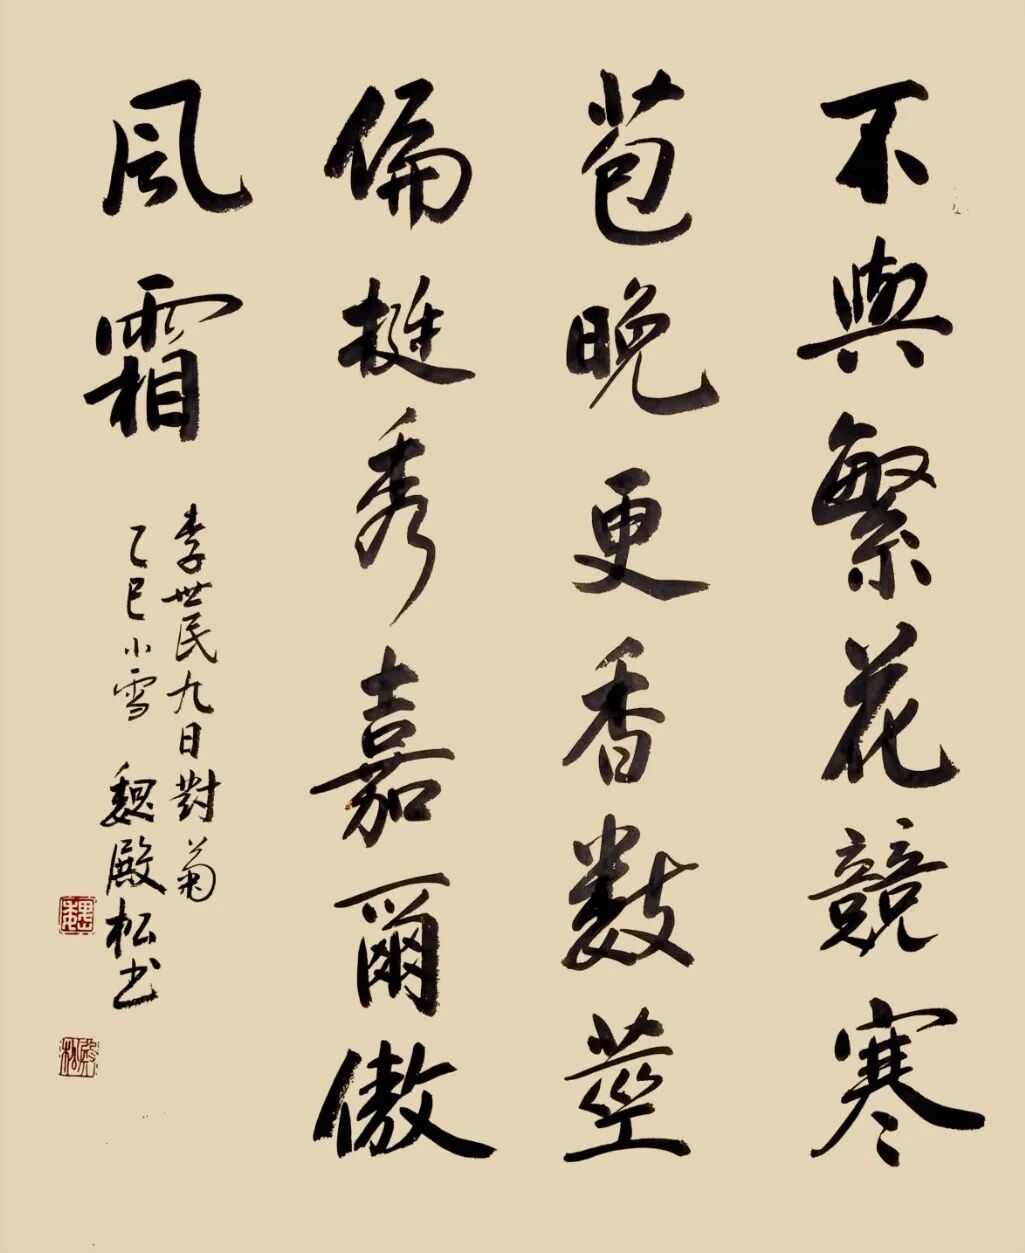 不與繁花競寒
苞晚更香數莖
偏挺秀嘉爾傲
風霜
李世民九日對菊
乙巳小雪 魏殿松书
魏
殿松